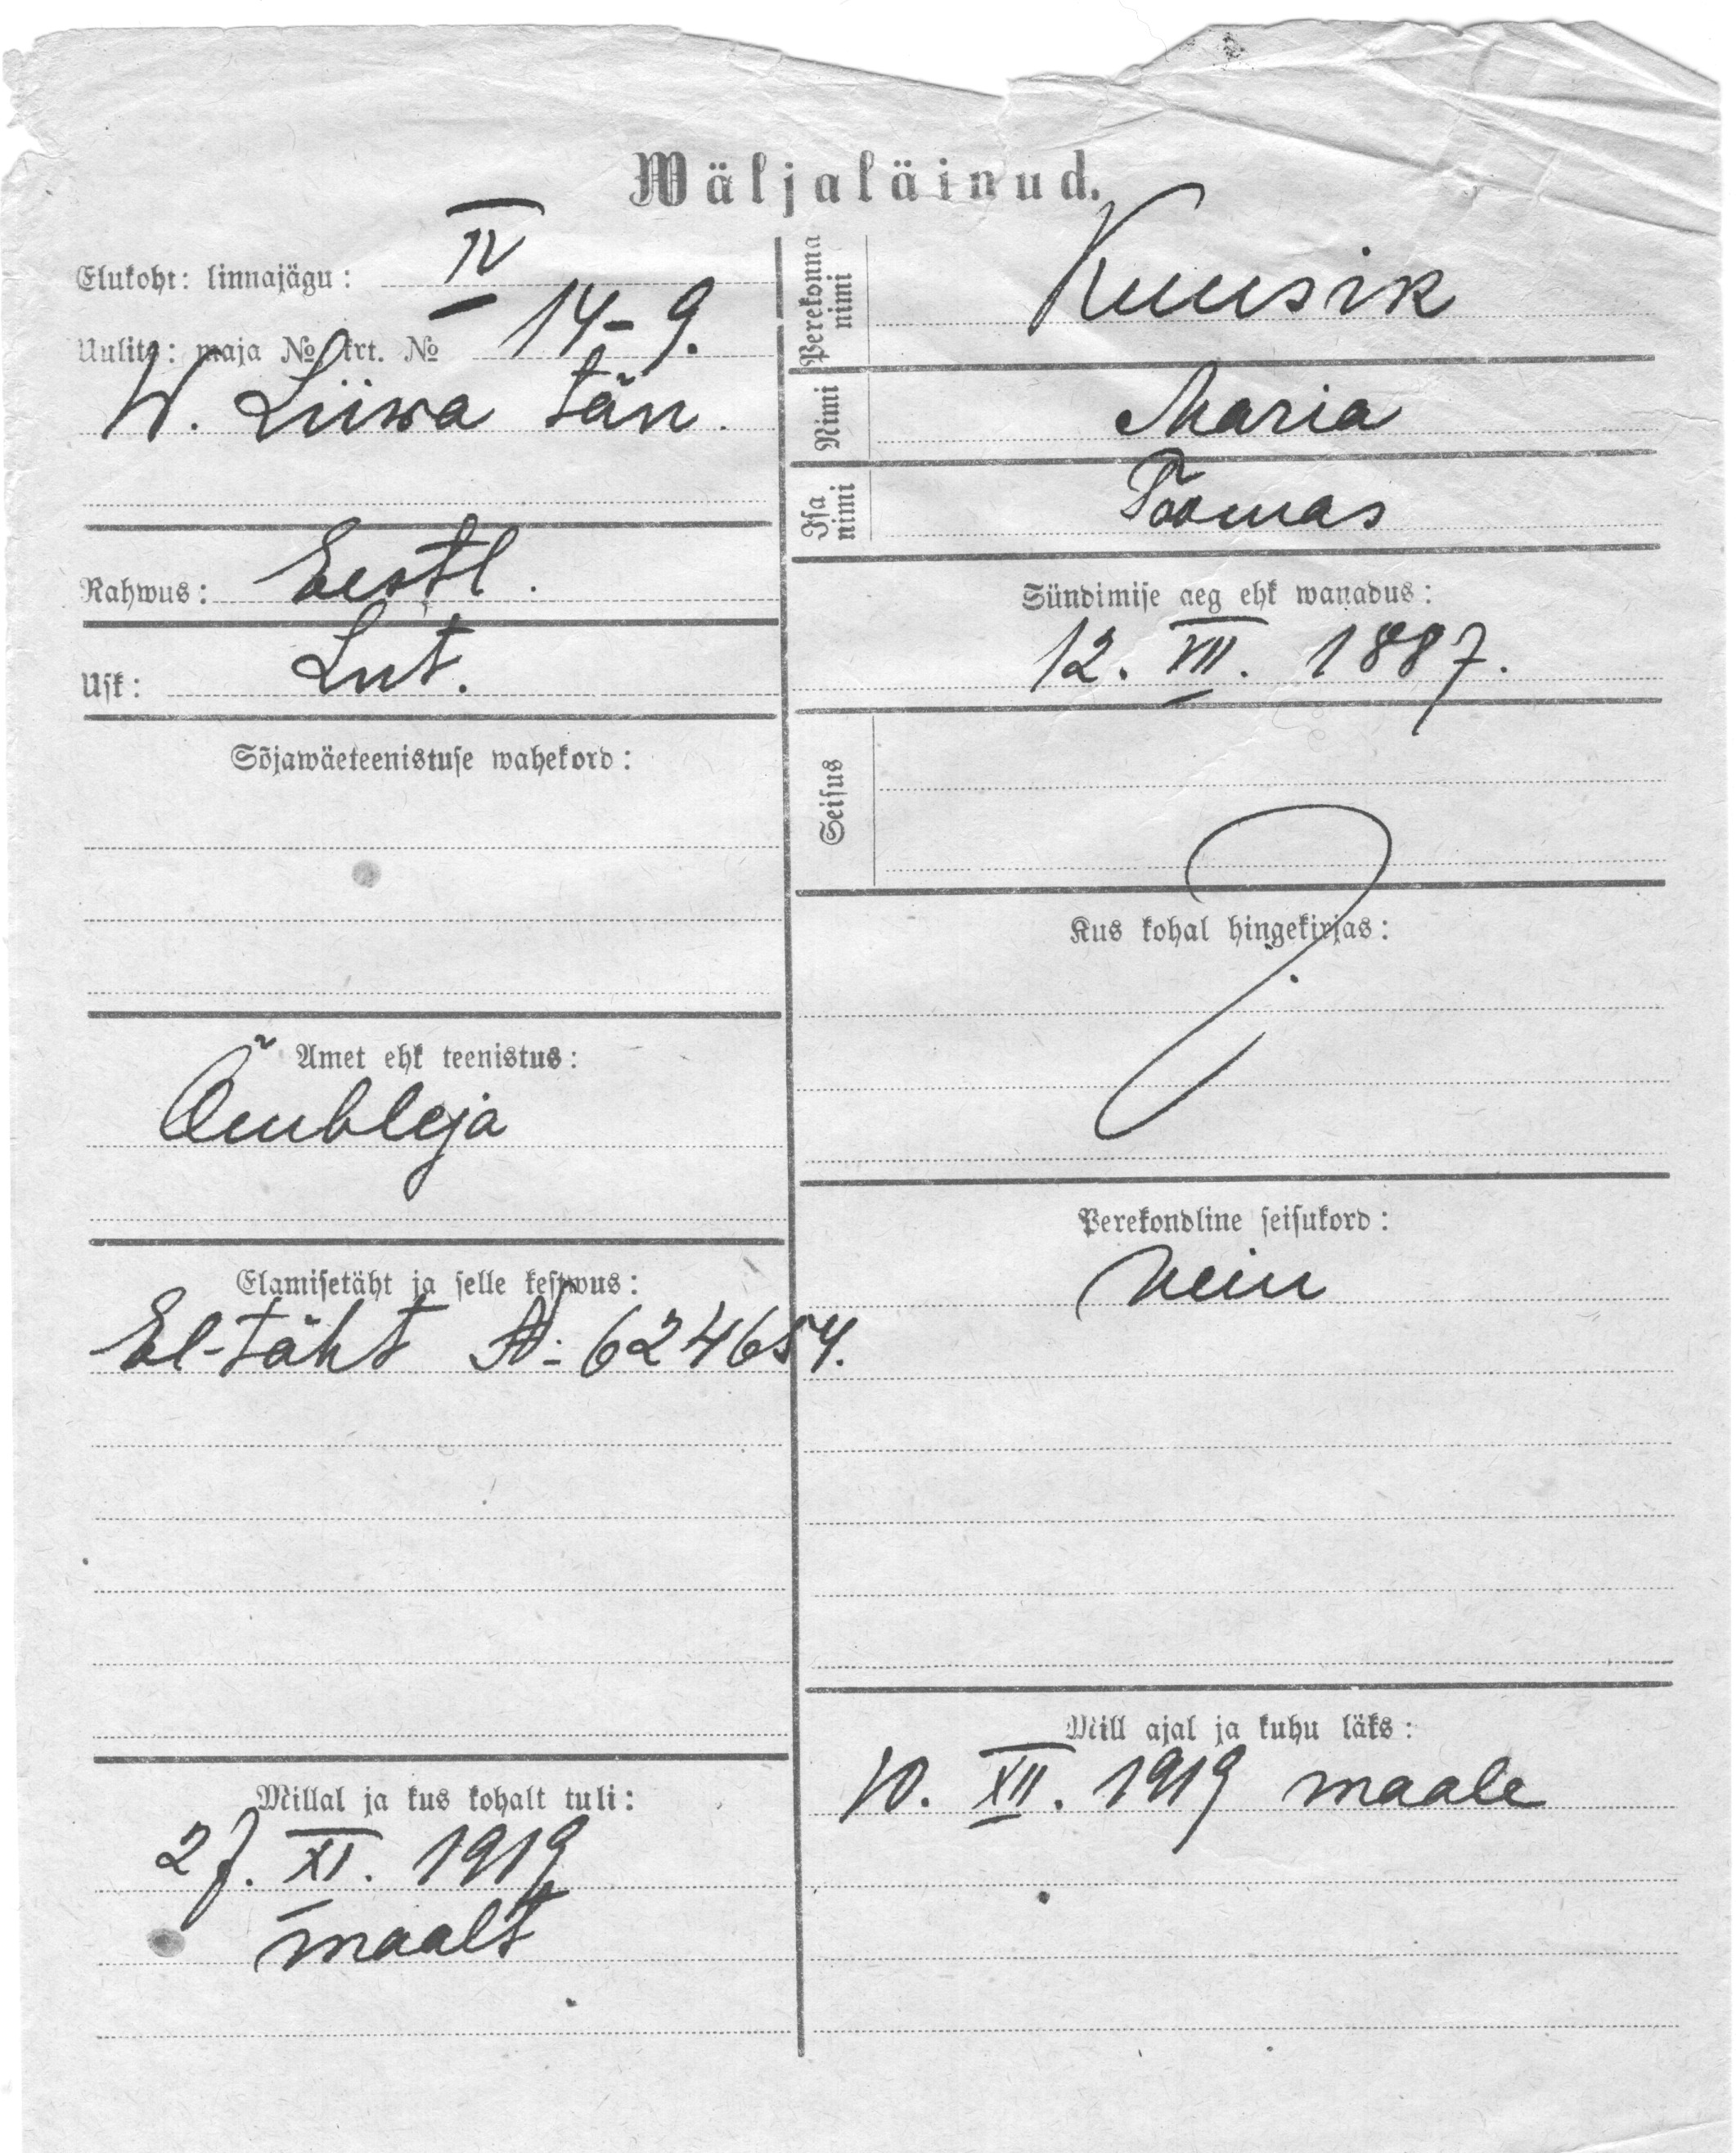 Wäljaläinud.
Elukoht: linnajägu: IV
Uulits: maja № krt. № 14-9.
W. Liiwa tän.
Rahwus: Eestl.
Usk: Lut.
Sõjawäeteenistuse wahekord:
Amet ehk teenistus:
Õmbleja
Elamisetäht ja selle kestwus:
El-täht №: 624654.
Millal ja kus kohalt tuli:
27. XI. 1919
maalt
Perekonna nimi Kuusik
Nimi Maria
Isa nimi Toomas
Sündimise aeg ehk wanadus:
12. VII. 1887.
Seisus
Kus kohal hingekirjas:
Perekondline seisukord:
Mill ajal ja kuhu läks:
10. XII. 1919 maale